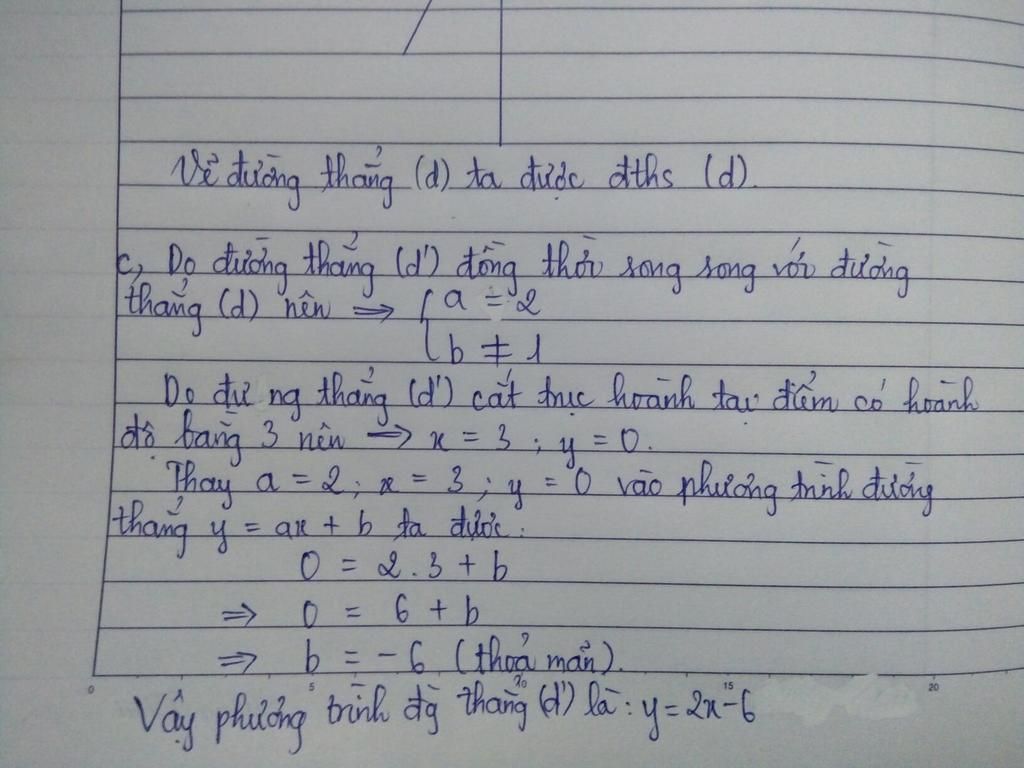 Vẽ đường thẳng (d) ta được đths (d).
c, Do đường thẳng (d') đồng thời song song với đường
thẳng (d) nên ⇒ { a = 2
b ≠ 1
Do đư ng thẳng (d') cắt trục hoành tại điểm có hoành
độ bằng 3 nên ⇒ x = 3 ; y = 0.
Thay a = 2 ; x = 3 ; y = 0 vào phương trình đường
thẳng y = ax + b ta được:
0 = 2.3 + b
⇒ 0 = 6 + b
⇒ b = -6 (thoả mãn).
0 5 10 15 20
Vậy phương trình đg thẳng (d') là: y = 2x - 6